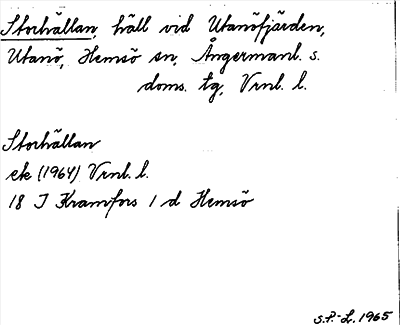 Storhällan, häll vid Utanöfjärden,
Utanö, Hemsö sn, Ångermanl. s.
doms. tg, Vrnl. l.
Storhällan
ek (1964) Vrnl. l.
18 I Kramfors 1 d Hemsö
S.P.-L. 1965